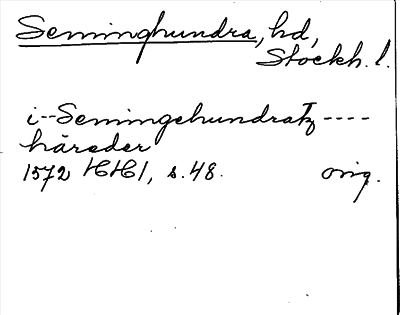 Seminghundra, hd,
Stockh. l.
i--Semingehundratz----
häreder
1572 HH1, s.48. orig.